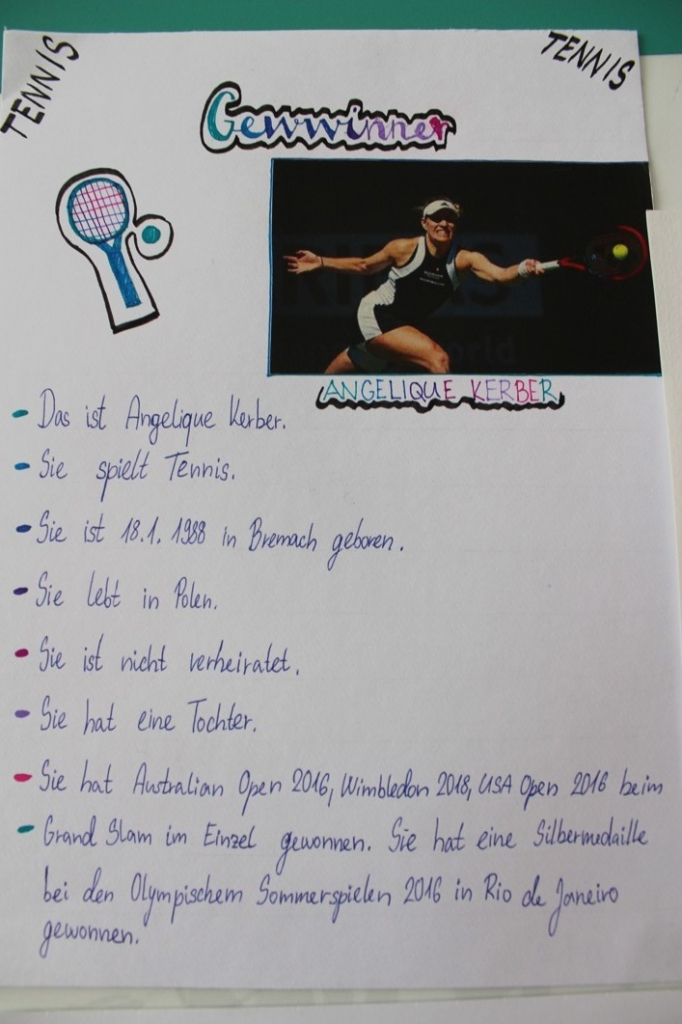 TENNIS
TENNIS
Gewwinner
ANGELIQUE KERBER
- Das ist Angelique Kerber.
- Sie spielt Tennis.
- Sie ist 18.1. 1988 in Bremach geboren.
- Sie lebt in Polen.
- Sie ist nicht verheiratet.
- Sie hat eine Tochter.
- Sie hat Australian Open 2016, Wimbledon 2018, USA Open 2016 beim
- Grand Slam im Einzel gewonnen. Sie hat eine Silbermedaille
bei den Olympischem Sommerspielen 2016 in Rio de Janeiro
gewonnen.